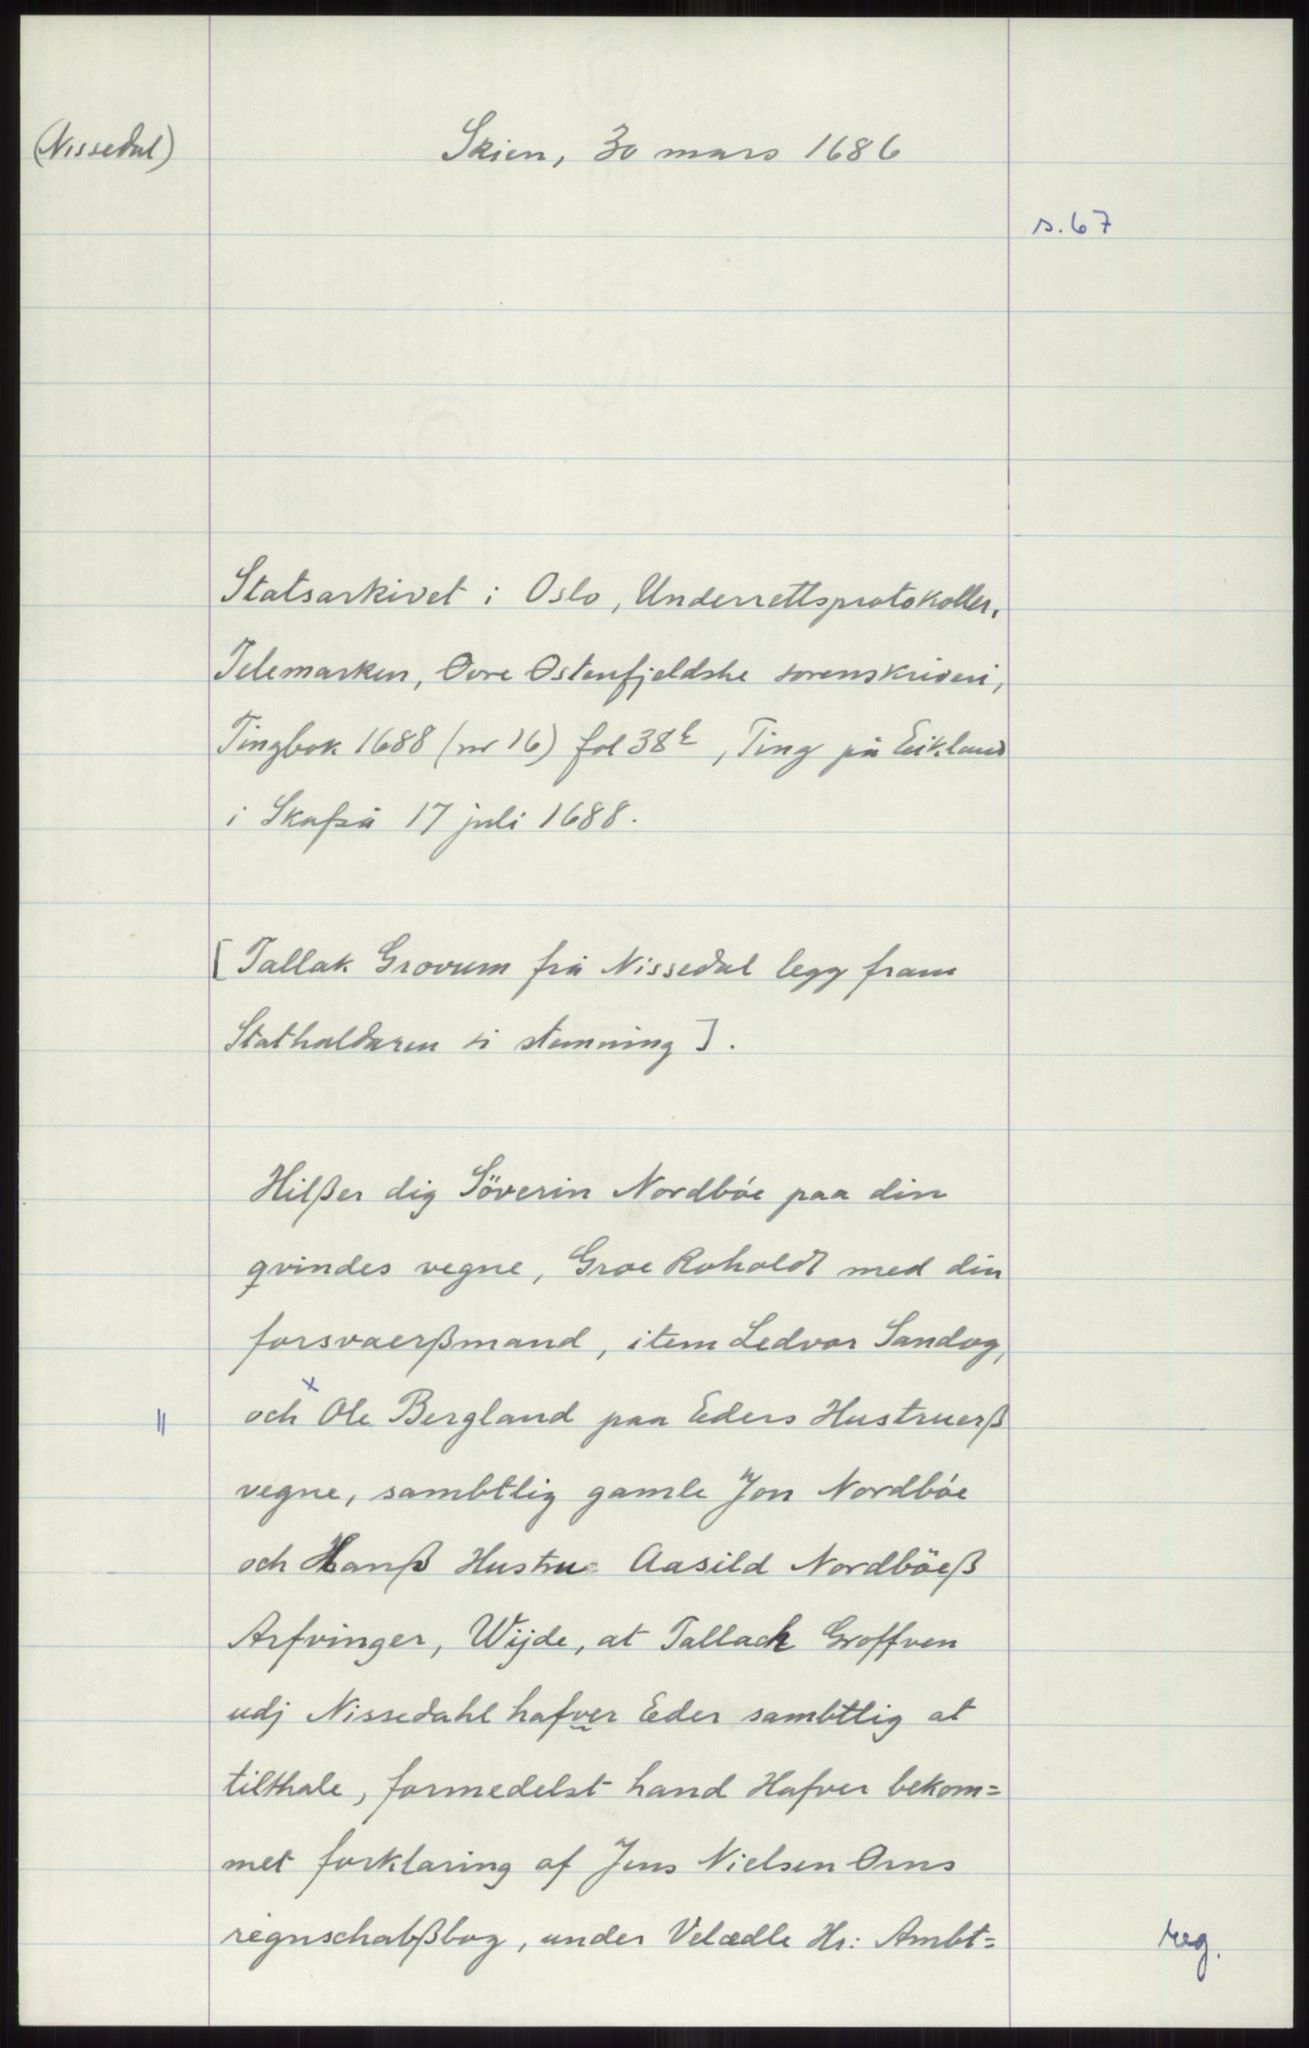 (Nissedal)
Skien, 30 mars 1686
s. 67
Statsarkivet i Oslo, Underrettsprotokoller,
Telemarken, Øvre Østenfjeldske sorenskriveri,
Tingbok 1688 (nr 16) fol 38b, Ting på Eikland
i Skafså 17 juli 1688.
[Tallak Grovum frå Nissedal legg fram
Stathaldaren si stemning].
Hilßer dig Söverin Nordbøe paa din
qvindes vegne, Groe Roholdt med din
forsvaerßmand, item Ledvor Sandog,
x
" och Ole Bergland paa Eders Hustruerß
vegne, sambtlig gamle Jon Nordbøe
och Hanß Hustru Aasild Nordböeß
Arfvinger, Wijde, at Tallach Groffven
udj Nissedahl hafver Eder sambtlig at
tilthale, formedelst hand Hafver bekom=
met forklaring af Jens Nielsen Ørns
regnschabßbog, under Velædle Hr: Ambt=
reg.